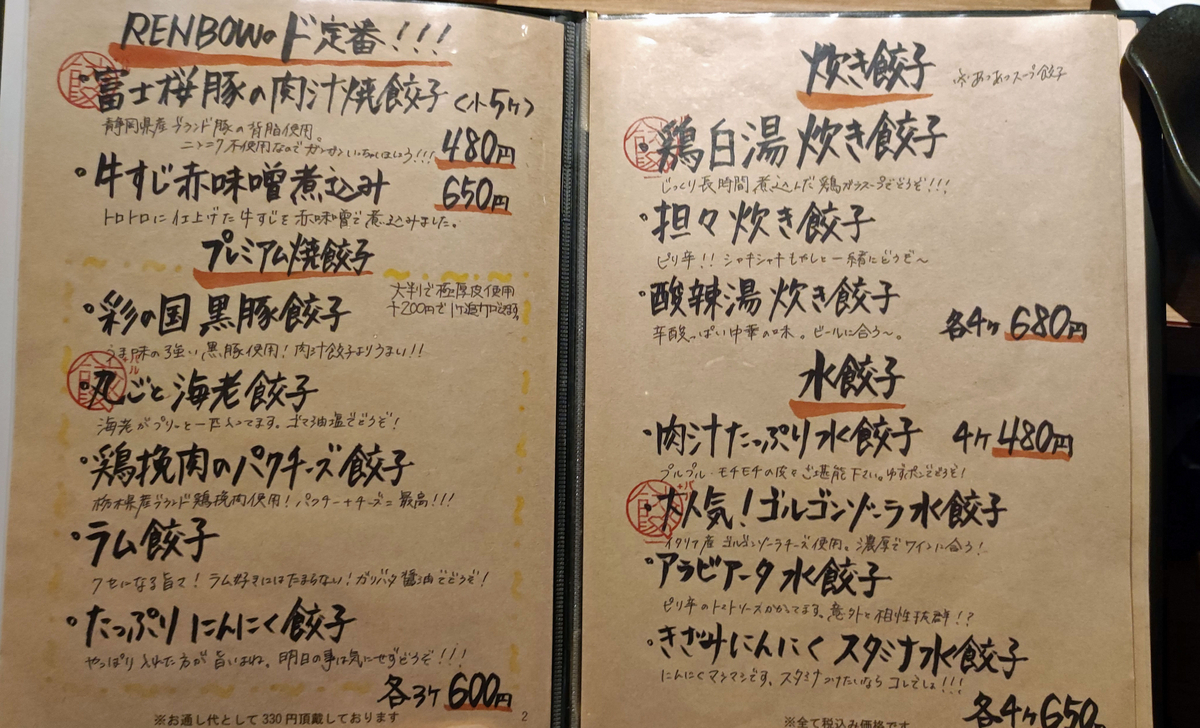 RENBOWの ド定番!!!
・富士桜豚の肉汁焼餃子〈小5ヶ〉
静岡県産ブランド豚の背脂使用。
ニンニク不使用なのでガンガンいっちゃいましょう!!!
480円
・牛すじ赤味噌煮込み 650円
トロトロに仕上げた牛すじを赤味噌で煮込みました。
プレミアム焼餃子
大判で極厚皮使用
+200円で1ヶ追加できます。
・彩の国 黒豚餃子
うま味の強い黒豚使用!肉汁餃子よりうまい!!
・丸ごと海老餃子
海老がプリーと一匹入ってます。ゴマ油塩でどうぞ!
・鶏挽肉のパクチーズ餃子
栃木県産ブランド鶏挽肉使用!パクチー+チーズ=最高!!!
・ラム餃子
クセになる旨さ!ラム好きにはたまらない!ガリバタ醤油でどうぞ!
・たっぷりにんにく餃子
やっぱり入れた方が旨いよね。明日の事は気にせずどうぞ!!!
各3ヶ 600円
※お通し代として330円頂戴しております
2
炊き餃子 ※あつあつスープ餃子
・鶏白湯 炊き餃子
じっくり長時間煮込んだ鶏ガラスープでどうぞ!!!
・担々 炊き餃子
ピリ辛!!シャキシャキもやしと一緒にどうぞ〜
・酸辣湯 炊き餃子
辛酸っぱい中華の味。ビールに合う〜。
各4ヶ 680円
水餃子
・肉汁たっぷり水餃子 4ヶ 480円
プルプル・モチモチの皮をご堪能下さい。ゆずポンでどうぞ!
・大人気!ゴルゴンゾーラ水餃子
イタリア産ゴルゴンゾーラチーズ使用。濃厚でワインに合う!
・アラビアータ水餃子
ピリ辛のトマトソースがかかってます。意外と相性抜群!?
・きざみにんにく スタミナ水餃子
にんにくマシマシです。スタミナつけたいならコレでしょ!!!
各4ヶ 650円
※全て税込み価格です